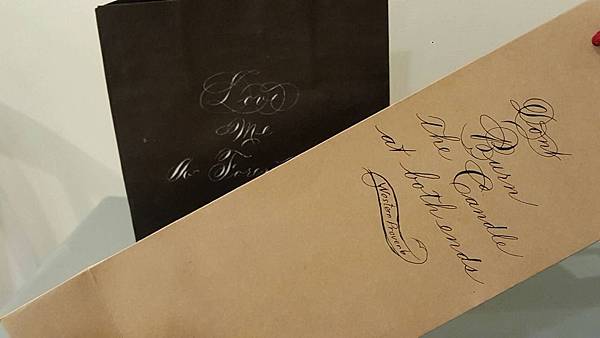 Love
Me
Dont
Burn
the Candle
at both ends.
Western Proverb